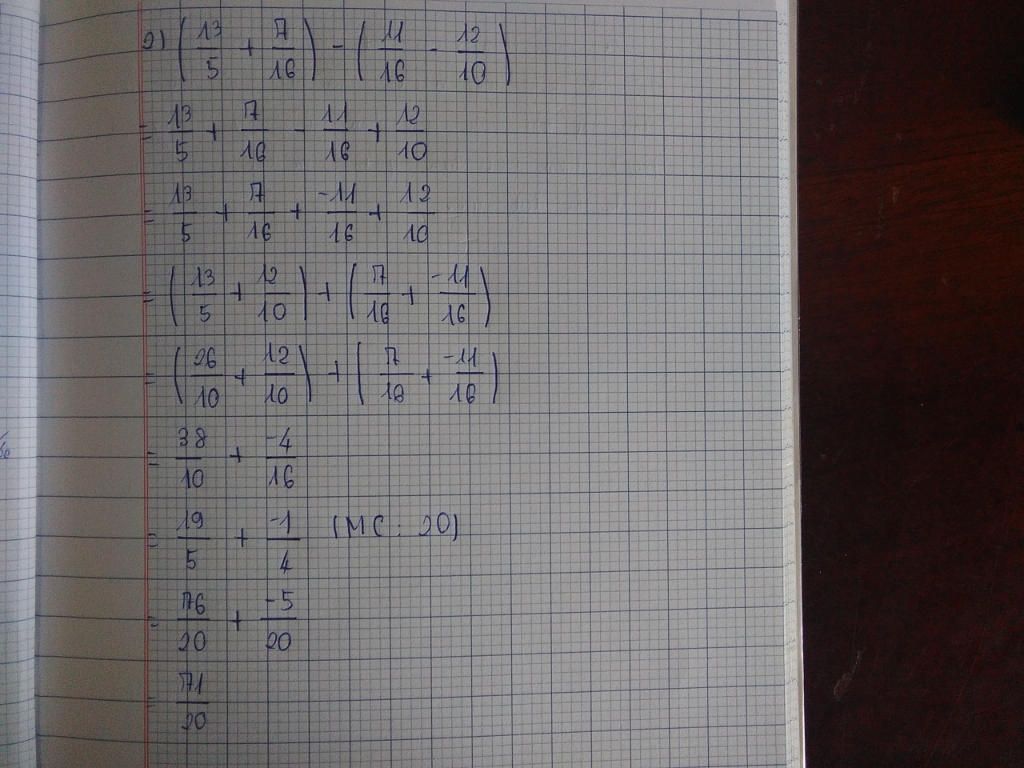 2) (13/5 + 7/16) - (11/16 - 12/10)
= 13/5 + 7/16 - 11/16 + 12/10
= 13/5 + 7/16 + -11/16 + 12/10
= (13/5 + 12/10) + (7/16 + -11/16)
= (26/10 + 12/10) + (7/16 + -11/16)
= 38/10 + -4/16
= 19/5 + -1/4 (MC: 20)
= 76/20 + -5/20
= 71/20